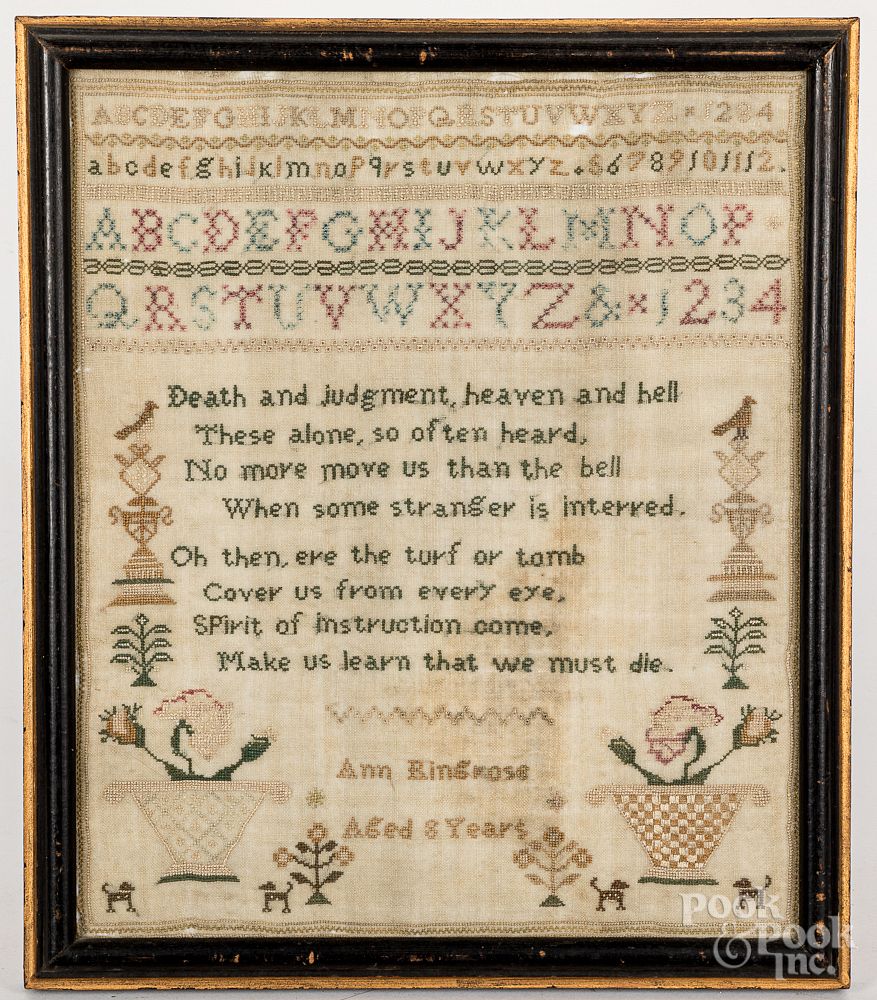 ABCDEFGHIJKLMNOPQRSTUVWXYZ × 1234
abcdefghijklmnopqrstuvwxyz . 56789101112.
ABCDEFGHIJKLMNOP
QRSTUVWXYZ & × 1234
Death and judgment, heaven and hell
These alone, so often heard,
No more move us than the bell
When some stranger is interred.
Oh then, ere the turf or tomb
Cover us from every eye,
SPirit of instruction come,
Make us learn that we must die.
Ann Ringrose
Aged 8 Years
Pook
& Pook
Inc.